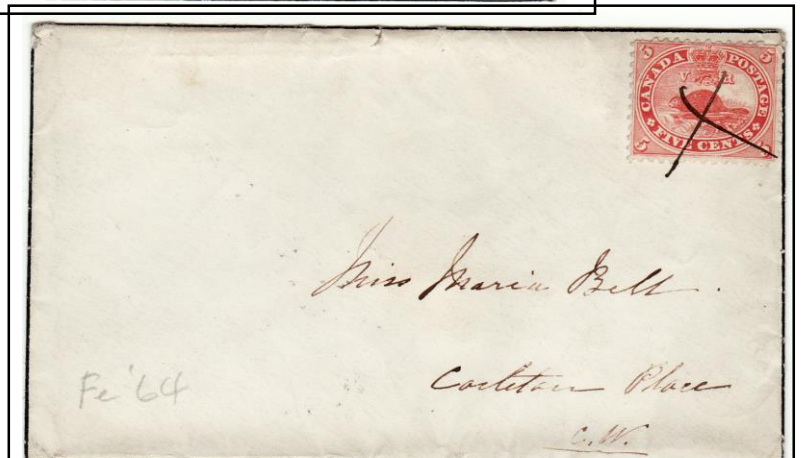 5 5
CANADA POSTAGE
V R
FIVE CENTS
5 5
Miss Maria Bell.
Carleton Place
C.W.
Fe '64